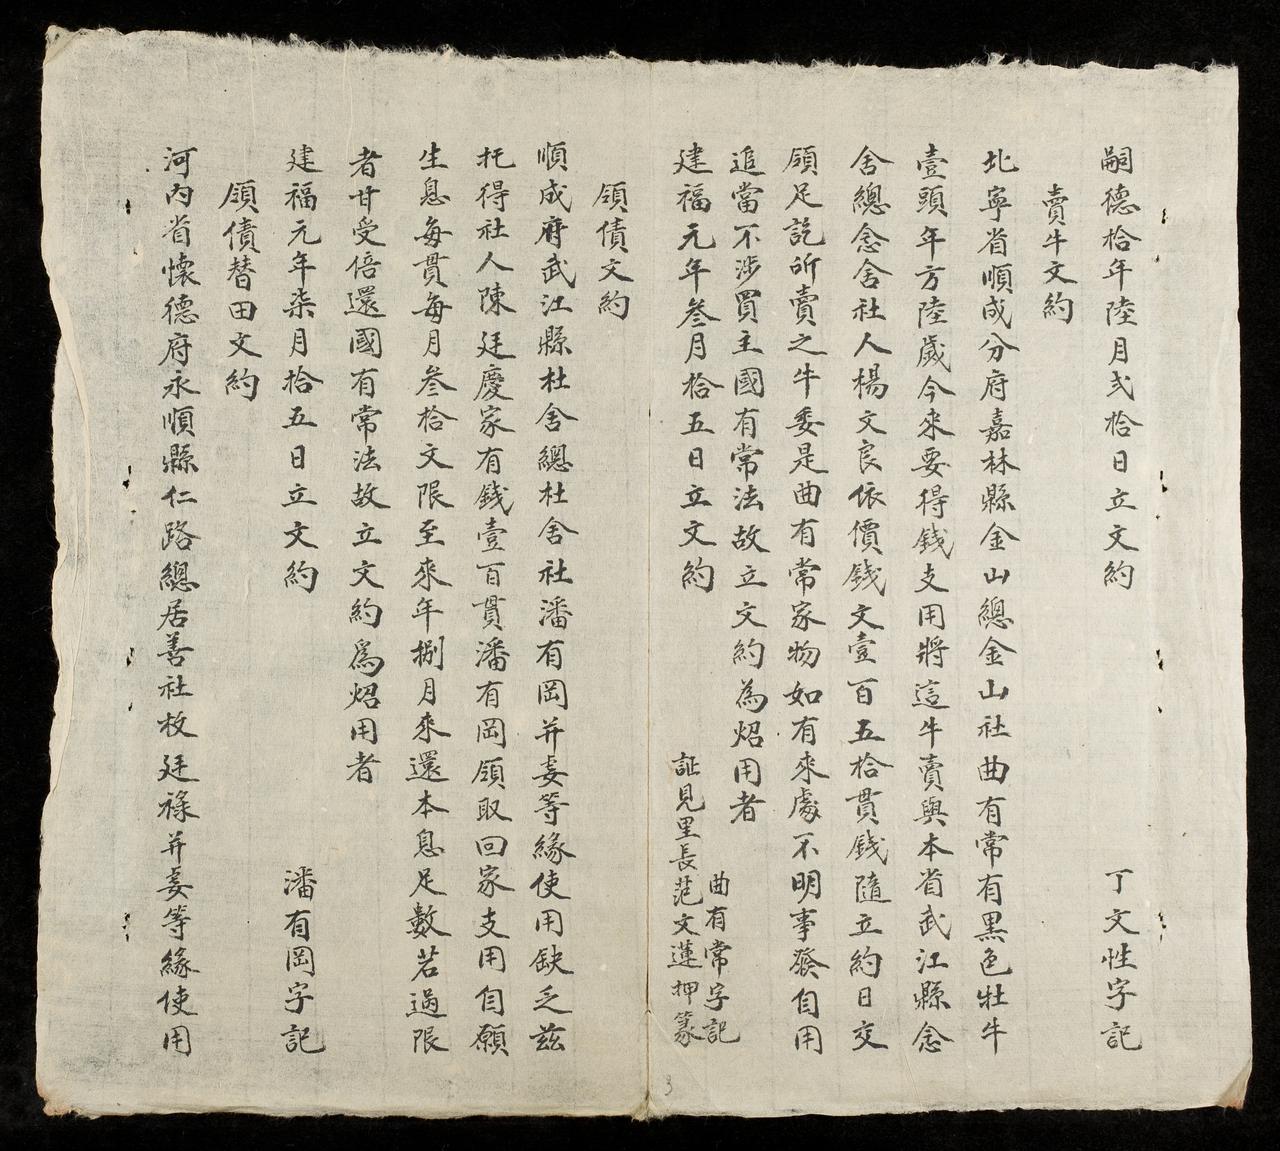 嗣德拾年陸月弍拾日立文約 丁文性字記
賣牛文約
北寧省順成分府嘉林縣金山總金山社曲有常有黑色牡牛
壹頭年方陸歲今來要得錢支用將這牛賣與本省武江縣念
舍總念舍社人楊文良依價錢文壹百五拾貫錢隨立約日交
領足訖所賣之牛委是曲有常家物如有來處不明事發自用
追當不涉買主國有常法故立文約為炤用者
建福元年叁月拾五日立文約 曲有常字記
証見里長范文蓮押篆
領債文約
順成府武江縣杜舍總杜舍社潘有岡并妾等緣使用缺乏茲
托得社人陳廷慶家有錢壹百貫潘有岡領取回家支用自願
生息每貫每月叁拾文限至來年捌月來還本息足數若過限
者甘受倍還國有常法故立文約爲炤用者
建福元年柒月拾五日立文約 潘有岡字記
領債替田文約
河內省懷德府永順縣仁路總居善社枚廷祿并妾等緣使用
3